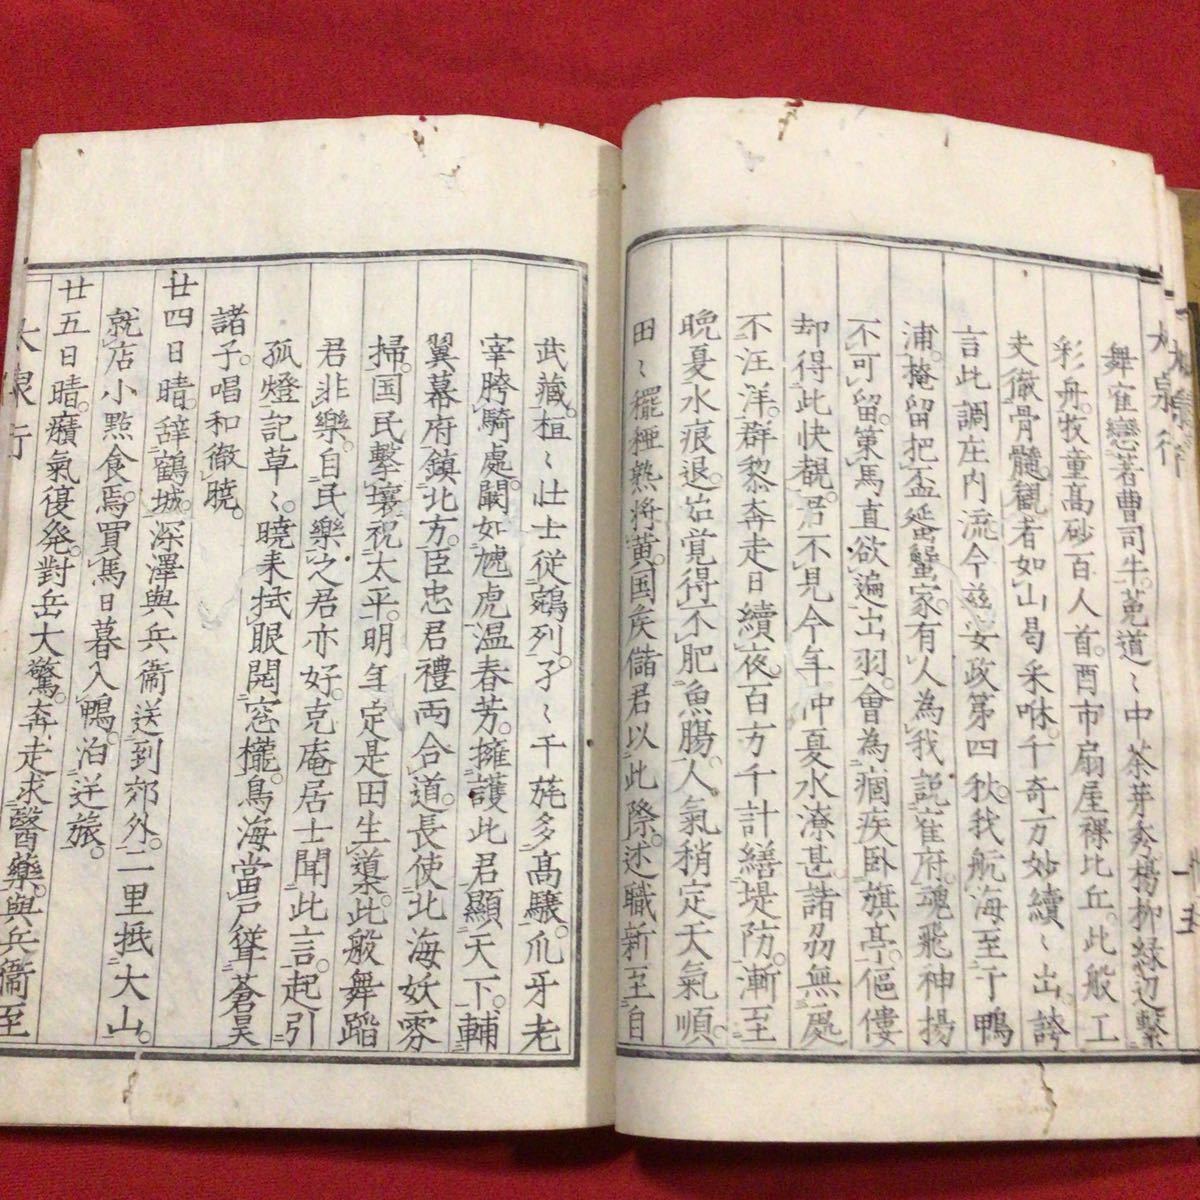 大泉行
舞雀戀著曹司牛。蒐道〻中茶芽秀。楊柳緑辺繫
彩舟。牧童髙砂百人首。酉市扇屋裸比丘。此般工
夫徹骨髓。観者如山曷采咻。千奇万妙續〻出。誇
言此調庄内流。今茲安政第四秋。我航海至于鴨
浦。掩留把盃䖝蟹家。有人為我説崔府。魂飛神揚
不可留。策馬直欲遍出羽。會為痼疾臥旗亭。傴僂
却得此快観。君不見今年仲夏水潦甚。諸刕無処
不汪洋。群黎奔走日續夜。百方千計繕堤防。漸至
晩夏水痕退。始覚得不肥魚膓。人氣稍定天氣順。
田〻䆉稏熟将黄。国侯儲君以此際。述職新至自
武藏。桓〻壮士従鵷列。孑〻千旄多髙驤。爪牙老
宰胯騎處。闞如虓虎温春芳。擁護此君顯天下。輔
翼幕府鎮北方。臣忠君禮両合道。長使北海妖雰
掃。国民擊壤祝太平。明年定是田生稾。此般舞蹈
君非樂。自民樂之君亦好。克庵居士聞此言。起引
孤燈記草〻。曉来拭眼開窓櫳。鳥海當戸聳蒼昊
諸子唱和徹曉。
廿四日晴。辞鶴城。深澤與兵衞送到郊外。二里抵大山。
就店小㸃食焉。買馬日暮入鴨。泊逆旅。
廿五日晴。癪氣復発。對岳大驚。奔走求醫藥。與兵衞至